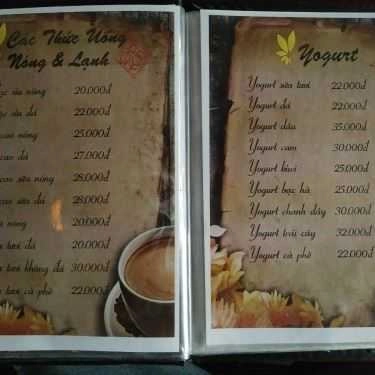 Các Thức Uống
Nóng & Lạnh
sữa nóng 20.000đ
sữa đá 22.000đ
cao nóng 25.000đ
cao đá 27.000đ
cao sữa nóng 28.000đ
cao sữa đá 28.000đ
nóng 20.000đ
tươi đá 20.000đ
tươi không đá 30.000đ
tươi cà phê 22.000đ
Yogurt
Yogurt sữa tươi 22.000đ
Yogurt đá 22.000đ
Yogurt dâu 35.000đ
Yogurt cam 30.000đ
Yogurt kiwi 25.000đ
Yogurt bạc hà 25.000đ
Yogurt chanh dây 30.000đ
Yogurt trái cây 32.000đ
Yogurt cà phê 22.000đ